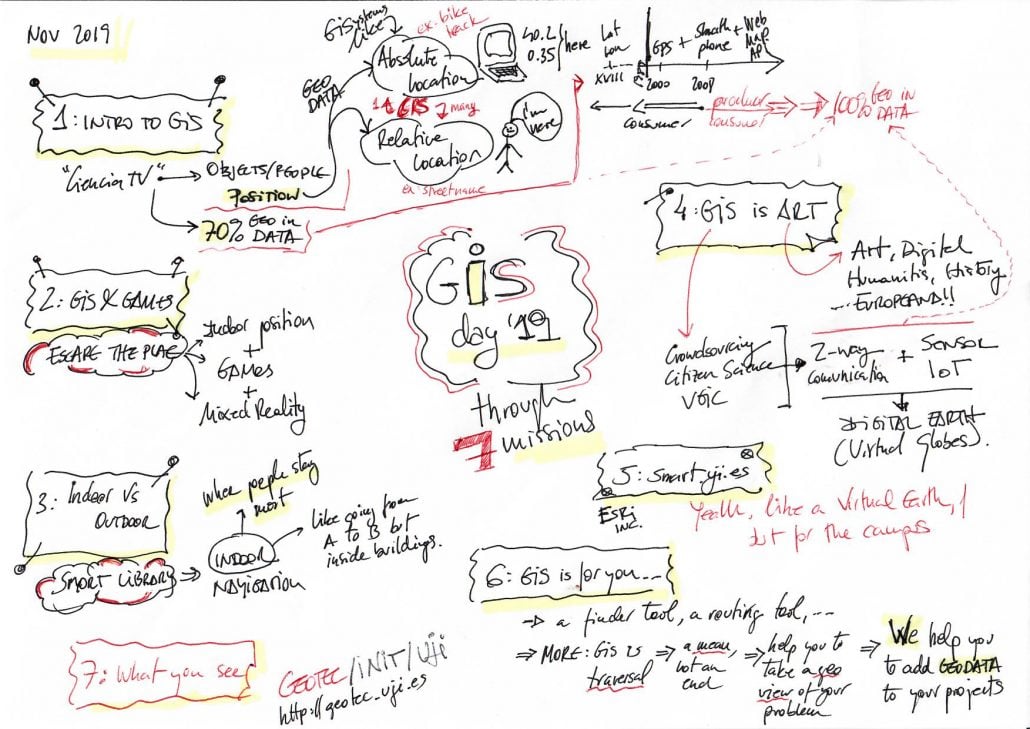 NOV 2019
1: INTRO TO GIS
"Ciencia TV"
OBJECTS/PEOPLE
POSITION
70% GEO in
DATA
GEO
DATA
GiSystems
Like
ex. bike
track
Absolute
location
40.2
0.35
here
Lat
Lon
1
GIS
many
Relative
Location
ex. streetname
i'm
here
XVIII
GPS + Smart + Web
phone
Map
API
2000
2008
consumer
producer
consumer
100% GEO IN
DATA
2: GIS & GAMES
ESCAPE THE PLACE
Indoor position
+
GAMES
+
Mixed Reality
GiS
day '19
through
7 missions
4: GiS is ART
Art, Digital
Humanitis, History
... EUROPEANA!!
Crowdsourcing
Citizen Science
VGIC
2-way
comunication
+ SENSOR
IoT
DIGITAL EARTH
(Virtual Globes).
3: Indoor Vs
OUTDOOR
SMART LIBRARY
where people stay
most
INDOOR
NAVIGATION
Like going from
A to B but
inside buildings.
5: Smart.uji.es
ESRi
INC.
Yeahh, like a Virtual Earth,
but for the campus
6: GiS is for you...
a finder tool, a routing tool, ...
MORE: GIS is
traversal
a mean,
not an
end
help you to
take a geo
view of your
problem
We help you
to add GEODATA
to your projects
7: What you see
GEOTEC/INIT/Uji
http://geotec.uji.es